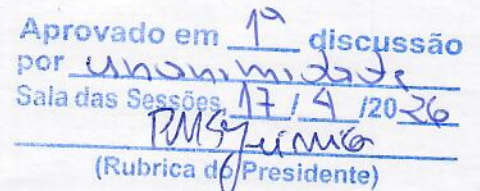 Aprovado em 1ª discussão
por unanimidade
Sala das Sessões, 17 / 4 /2026
(Rubrica do Presidente)